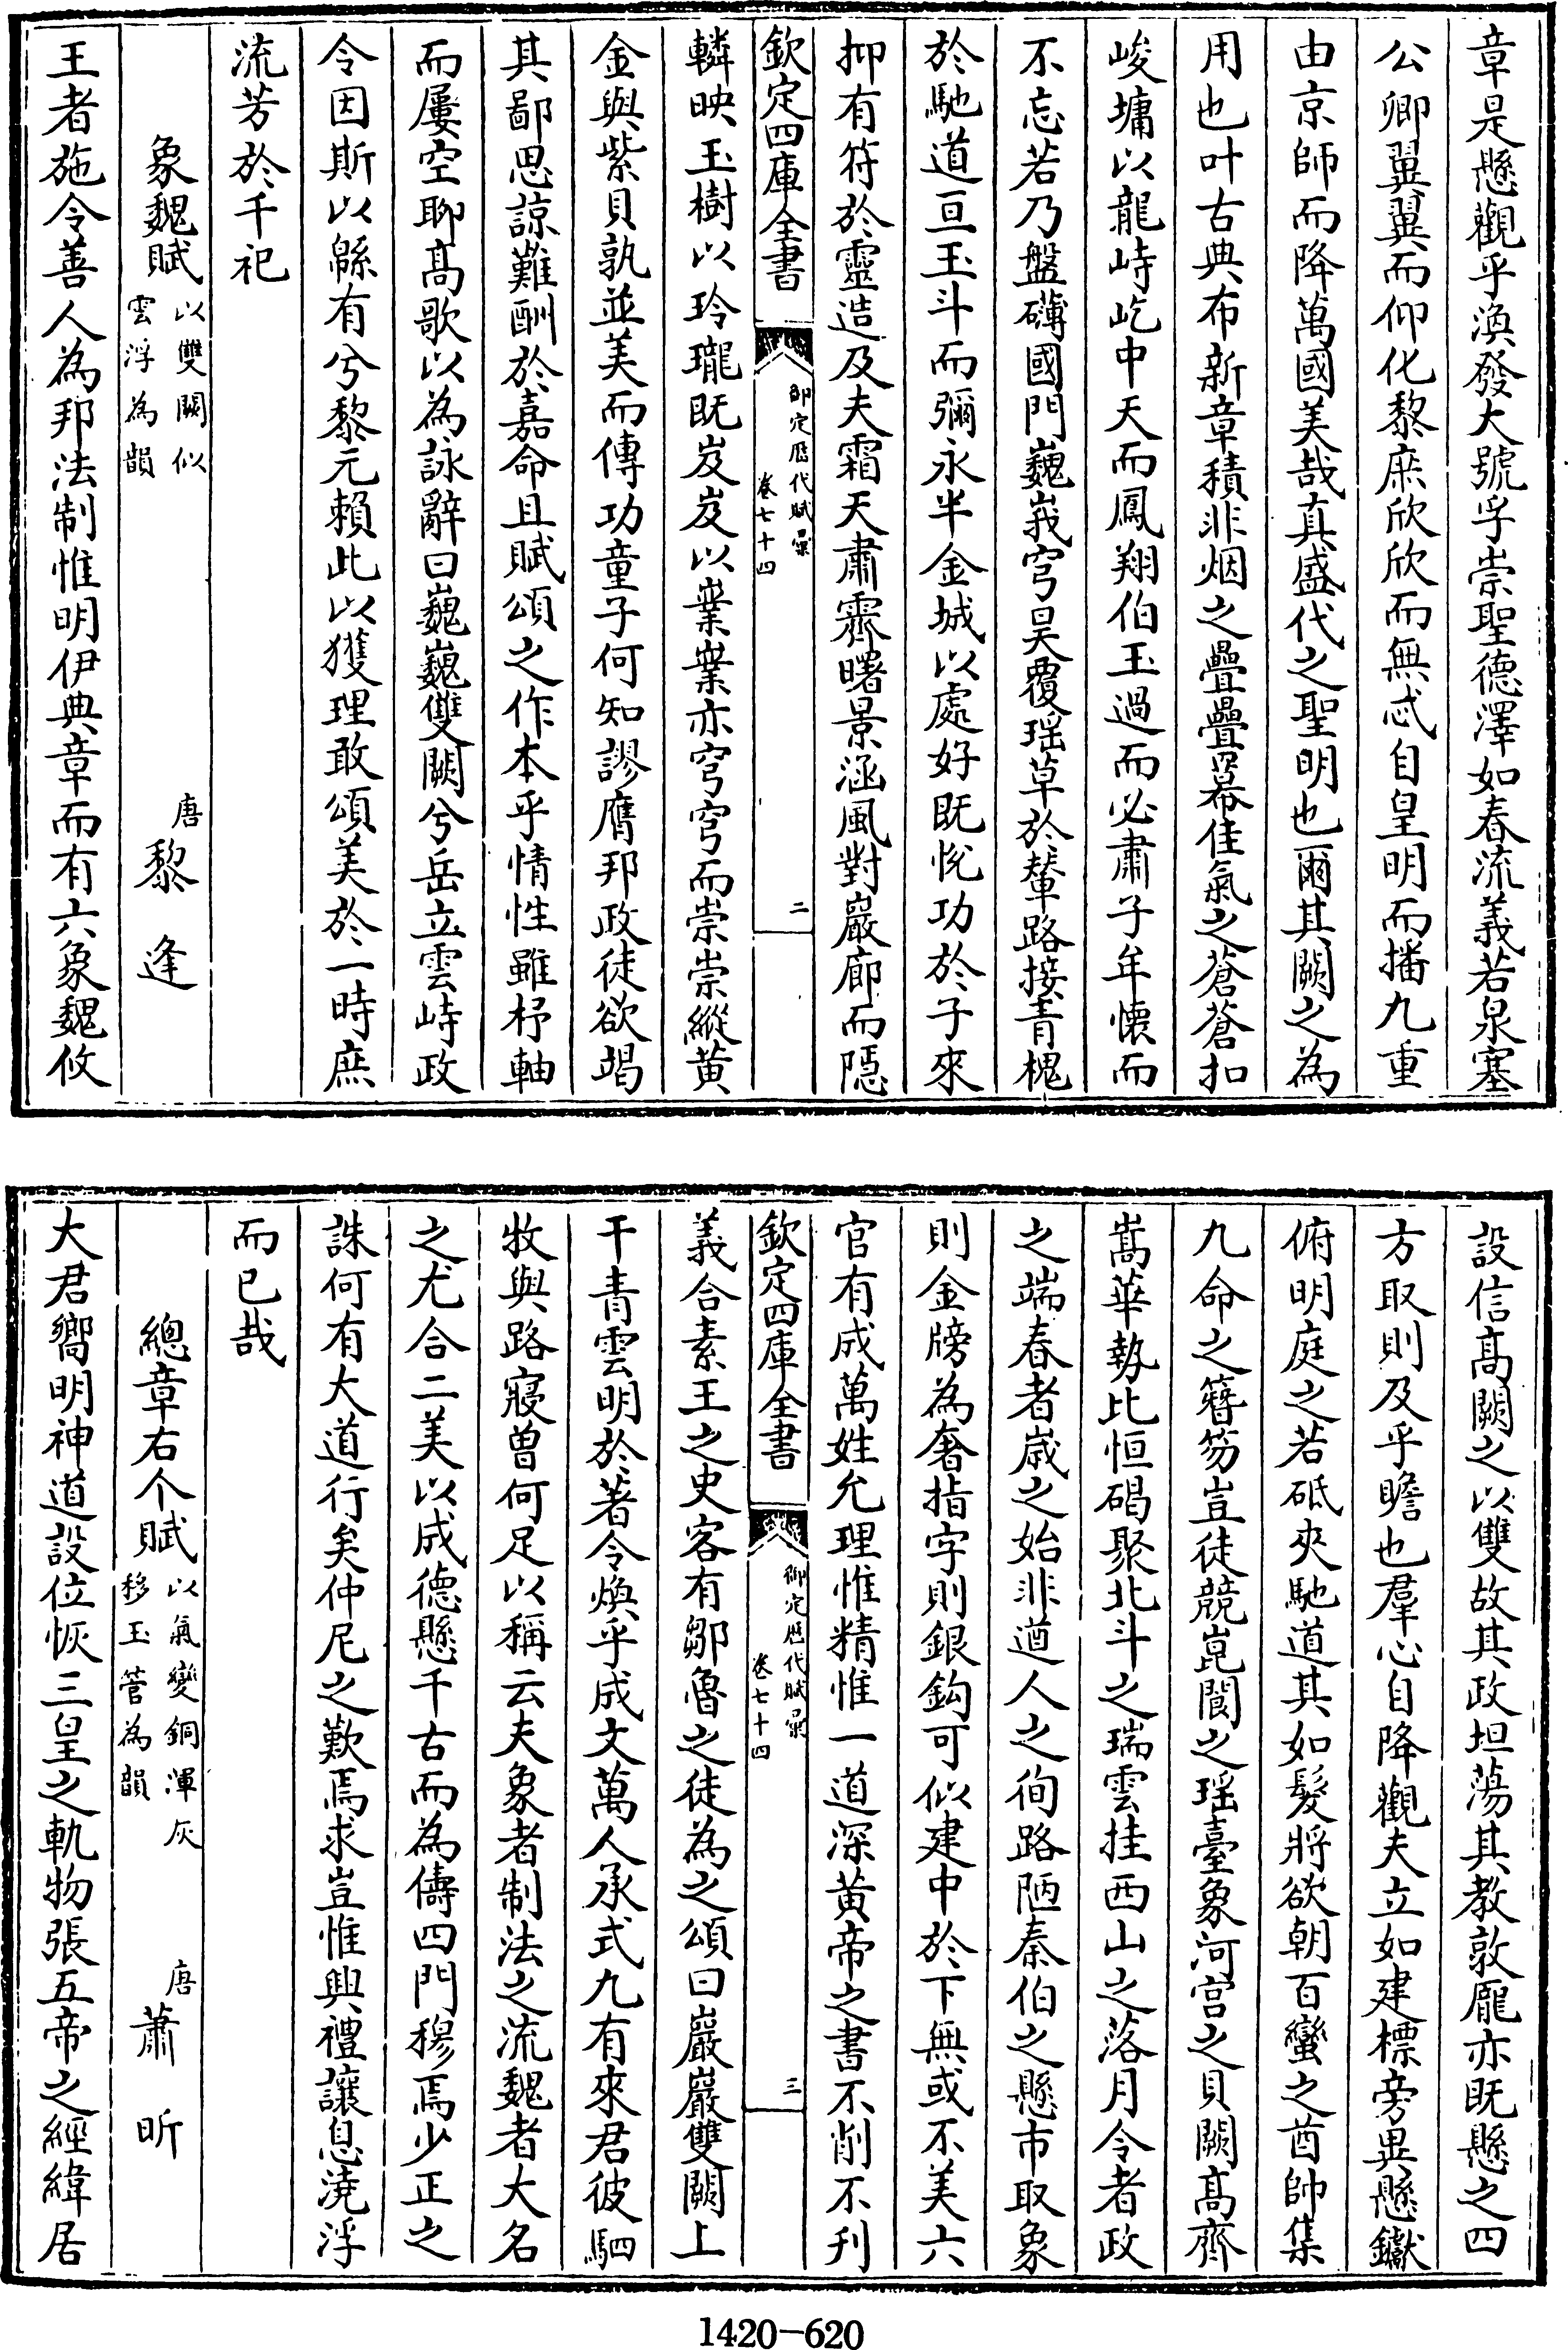 章是懸觀乎渙發大號孚崇聖德澤如春流義若泉塞
公卿翼翼而仰化黎庶欣欣而無忒自皇明而播九重
由京師而降萬國美哉真盛代之聖明也爾其闕之為
用也叶古典布新章積非烟之疊疊幕佳氣之蒼蒼扣
峻墉以龍峙屹中天而鳳翔伯玉過而必肅子牟懷而
不忘若乃盤礴國門巍峩穹昊覆瑶草於輦路接青槐
於馳道亘玉斗而彌永半金城以處好既恱功於子來
抑有符於靈造及夫霜天肅霽曙景涵風對巖廊而隱
欽定四庫全書
御定厯代賦彙
卷七十四
二
轔映玉樹以玲瓏既岌岌以業業亦穹穹而崇崇縱黄
金與紫貝孰並美而傳功童子何知謬膺邦政徒欲竭
其鄙思諒難酬於嘉命且賦頌之作本乎情性雖杼軸
而屢空聊髙歌以為詠辭曰巍巍雙闕兮岳立雲峙政
令因斯以緜有兮黎元賴此以獲理敢頌美於一時庶
流芳於千祀
象魏賦
以雙闕似
雲浮為韻
唐
黎逢
王者施令善人為邦法制惟明伊典章而有六象魏攸
設信髙闕之以雙故其政坦蕩其教敦龐亦既懸之四
方取則及乎瞻也羣心自降觀夫立如建標旁異懸钀
俯明庭之若砥夾馳道其如髮將欲朝百蠻之酋帥集
九命之簪笏豈徒競崑閬之瑶臺象河宫之貝闕髙齊
嵩華勢比恒碣聚北斗之瑞雲挂西山之落月令者政
之端春者嵗之始非遒人之徇路陋秦伯之懸市取象
則金牓為奢指字則銀鈎可似建中於下無或不美六
官有成萬姓允理惟精惟一道深黄帝之書不削不刊
欽定四庫全書
御定厯代賦彙
卷七十四
三
義合素王之史客有鄒魯之徒為之頌曰巖巖雙闕上
干青雲明於著令煥乎成文萬人承式九有來君彼駟
牧與路寢曽何足以稱云夫象者制法之流魏者大名
之尤合二美以成德懸千古而為儔四門穆焉少正之
誅何有大道行矣仲尼之歎焉求豈惟興禮讓息澆浮
而已哉
總章右个賦
以氣變銅渾灰
移玉管為韻
唐
蕭昕
大君嚮明神道設位恢三皇之軌物張五帝之經緯居
1420-620